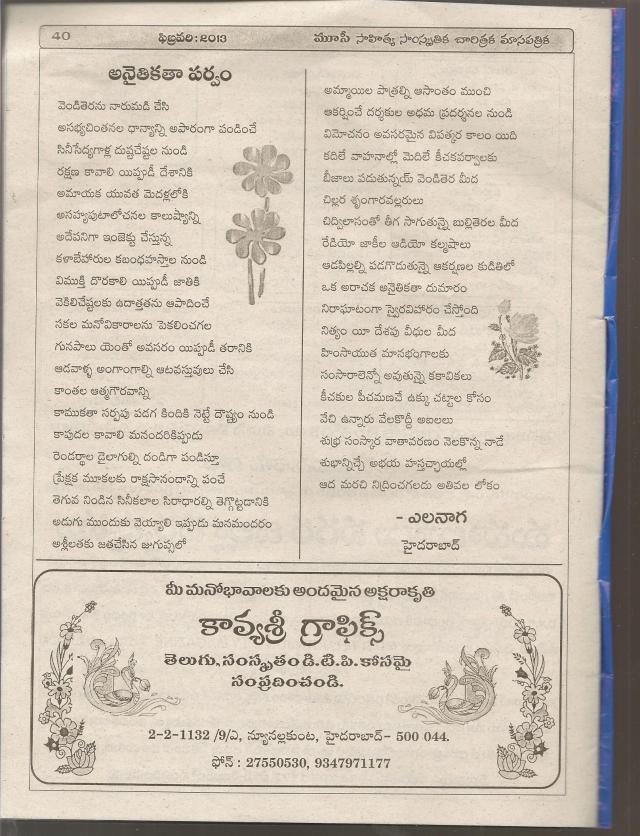 40
ఫిబ్రవరి: 2013
మూసీ సాహిత్య సాంస్కృతిక చారిత్రక మాసపత్రిక
అనైతికతా పర్వం
వెండితెరను నారుమడి చేసి
అసభ్యచింతనల ధాన్యాన్ని అపారంగా పండించే
సినీసేద్యగాళ్ల దుష్టచేష్టల నుండి
రక్షణ కావాలి యిప్పుడీ దేశానికి
అమాయక యువత మెదళ్లలోకి
అసహ్యపుటాలోచనల కాలుష్యాన్ని
అదేపనిగా ఇంజెక్టు చేస్తున్న
కళాబేహారుల కబంధహస్తాల నుండి
విముక్తి దొరకాలి యిప్పుడీ జాతికి
వెకిలిచేష్టలకు ఉదాత్తతను ఆపాదించే
సకల మనోవికారాలను పెకలించగల
గునపాలు యెంతో అవసరం యిప్పుడీ తరానికి
ఆడవాళ్ళ అంగాంగాల్ని ఆటవస్తువులు చేసి
కాంతల ఆత్మగౌరవాన్ని
కాముకతా సర్పపు పడగ కిందికి నెట్టే దౌష్ట్యం నుండి
కాపుదల కావాలి మనందరికిప్పుడు
రెండర్థాల డైలాగుల్ని దండిగా పండిస్తూ
ప్రేక్షక మూకలకు రాక్షసానందాన్ని పంచే
తెగువ నిండిన సినీకలాల సిరాధారల్ని తెగ్గొట్టడానికి
అడుగు ముందుకు వెయ్యాలి ఇప్పుడు మనమందరం
అశ్లీలతకు జతచేసిన జుగుప్సలో
అమ్మాయిల పాత్రల్ని ఆసాంతం ముంచి
ఆకర్షించే దర్శకుల అధమ ప్రదర్శనల నుండి
విమోచనం అవసరమైన విపత్కర కాలం యిది
కదిలే వాహనాల్లో మెదిలే కీచకపర్వాలకు
బీజాలు పడుతున్నయ్ వెండితెర మీద
చిల్లర శృంగారవల్లరులు
చిద్విలాసంతో తీగ సాగుతున్నై బుల్లితెరల మీద
రేడియో జాకీల ఆడియో కల్మషాలు
ఆడపిల్లల్ని పడగొడుతున్నై ఆకర్షణల కుడితిలో
ఒక అరాచక అనైతికతా దుమారం
నిరాఘాటంగా స్వైరవిహారం చేస్తోంది
నిత్యం యీ దేశపు వీధుల మీద
హింసాయుత మానభంగాలకు
సంసారాలెన్నో అవుతున్నై కకావికలు
కీచకుల పీచమణచే ఉక్కు చట్టాల కోసం
వేచి ఉన్నారు వేలకొద్దీ అబలలు
శుభ్ర సంస్కార వాతావరణం నెలకొన్న నాడే
శుభాన్నిచ్చే అభయ హస్తచ్ఛాయల్లో
ఆద మరచి నిద్రించగలదు అతివల లోకం
- ఎలనాగ
హైదరాబాద్
మీ మనోభావాలకు అందమైన అక్షరాకృతి
కావ్యశ్రీ గ్రాఫిక్స్
తెలుగు, సంస్కృతం డి.టి.పి. కోసమై
సంప్రదించండి.
2-2-1132 /9/ఎ, న్యూనల్లకుంట, హైదరాబాద్- 500 044.
ఫోన్ : 27550530, 9347971177